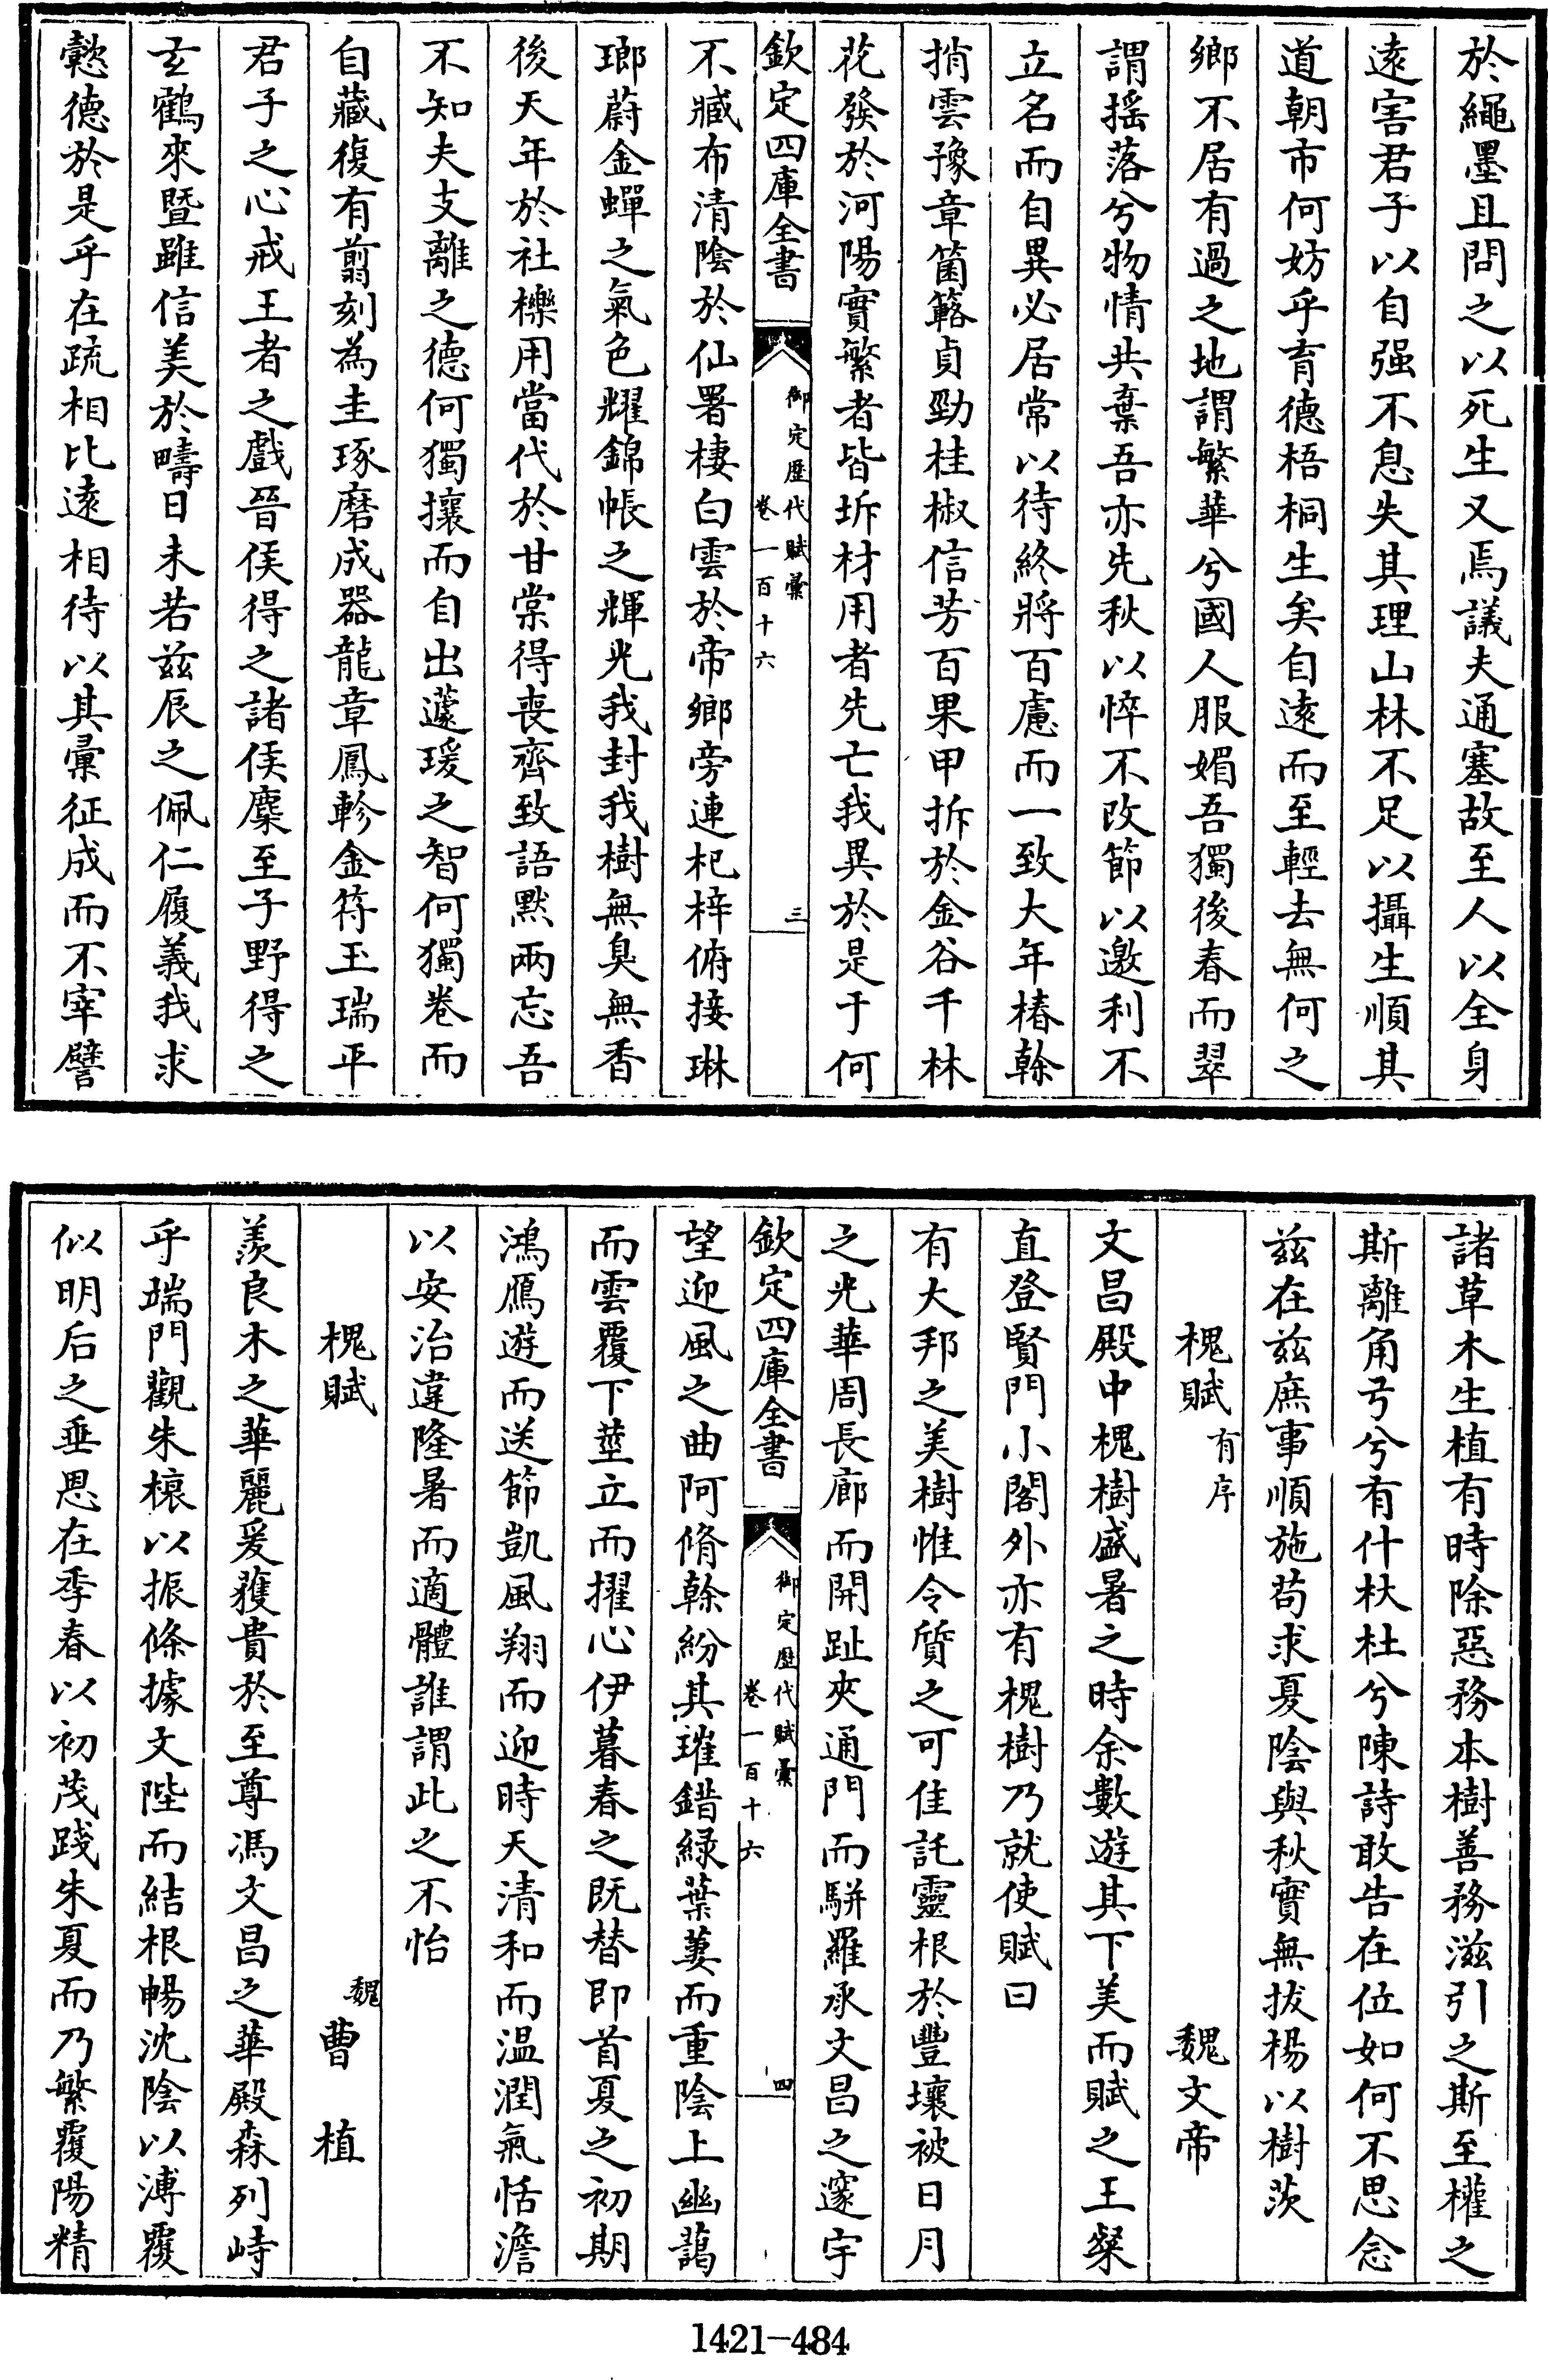 於繩墨且問之以死生又焉議夫通塞故至人以全身
遠害君子以自强不息失其理山林不足以攝生順其
道朝市何妨乎育德梧桐生矣自遠而至輕去無何之
鄉不居有過之地謂繁華兮國人服媚吾獨後春而翠
謂摇落兮物情共棄吾亦先秋以悴不改節以邀利不
立名而自異必居常以待終將百慮而一致大年椿榦
捎雲豫章箘簵貞勁桂椒信芳百果甲拆於金谷千林
花發於河陽實繁者皆坼材用者先亡我異於是于何
欽定四庫全書
御定歷代賦彙
卷一百十六
三
不臧布清陰於仙署棲白雲於帝鄉旁連杞梓俯接琳
瑯蔚金蟬之氣色耀錦帳之輝光我封我樹無臭無香
後天年於社櫟用當代於甘棠得喪齊致語默兩忘吾
不知夫支離之德何獨攘而自出蘧瑗之智何獨卷而
自藏復有翦刻為圭琢磨成器龍章鳳軫金符玉瑞平
君子之心戒王者之戲晉侯得之諸侯麇至子野得之
玄鶴來暨雖信美於疇日未若兹辰之佩仁履義我求
懿德於是乎在疏相比遠相待以其彙征成而不宰譬
諸草木生植有時除惡務本樹善務滋引之斯至權之
斯離角弓兮有什杕杜兮陳詩敢告在位如何不思念
兹在兹庶事順施苟求夏陰與秋實無拔楊以樹茨
槐賦有序
魏文帝
文昌殿中槐樹盛暑之時余數遊其下美而賦之王粲
直登賢門小閣外亦有槐樹乃就使賦曰
有大邦之美樹惟令質之可佳託靈根於豐壤被日月
之光華周長廊而開趾夾通門而駢羅承文昌之邃宇
欽定四庫全書
御定歷代賦彙
卷一百十六
四
望迎風之曲阿脩榦紛其璀錯緑葉萋而重陰上幽藹
而雲覆下莖立而擢心伊暮春之既替即首夏之初期
鴻鴈遊而送節凱風翔而迎時天清和而温潤氣恬澹
以安治違隆暑而適體誰謂此之不怡
槐賦
魏曹植
羨良木之華麗爰獲貴於至尊馮文昌之華殿森列峙
乎端門觀朱榱以振條據文陛而結根暢沈陰以溥覆
似明后之垂恩在季春以初茂踐朱夏而乃繁覆陽精
1421-484